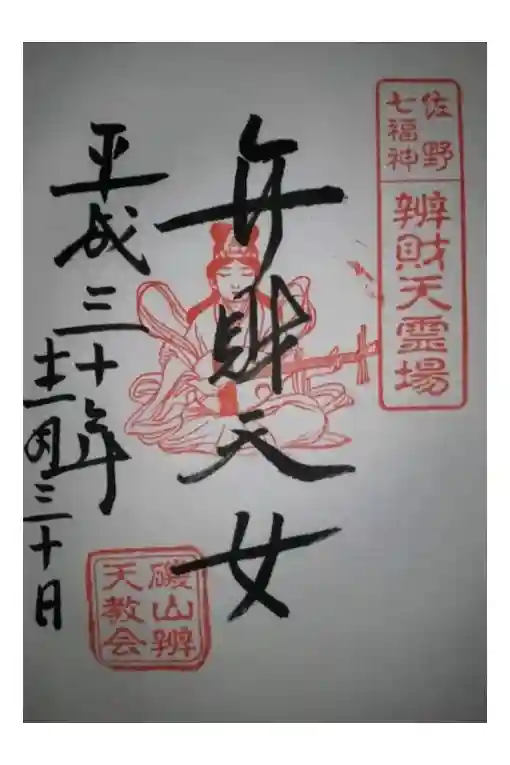 佐野
七福神
辨財天霊場
弁財天女
平成三十年
十二月三十日
磯山辨
天教会